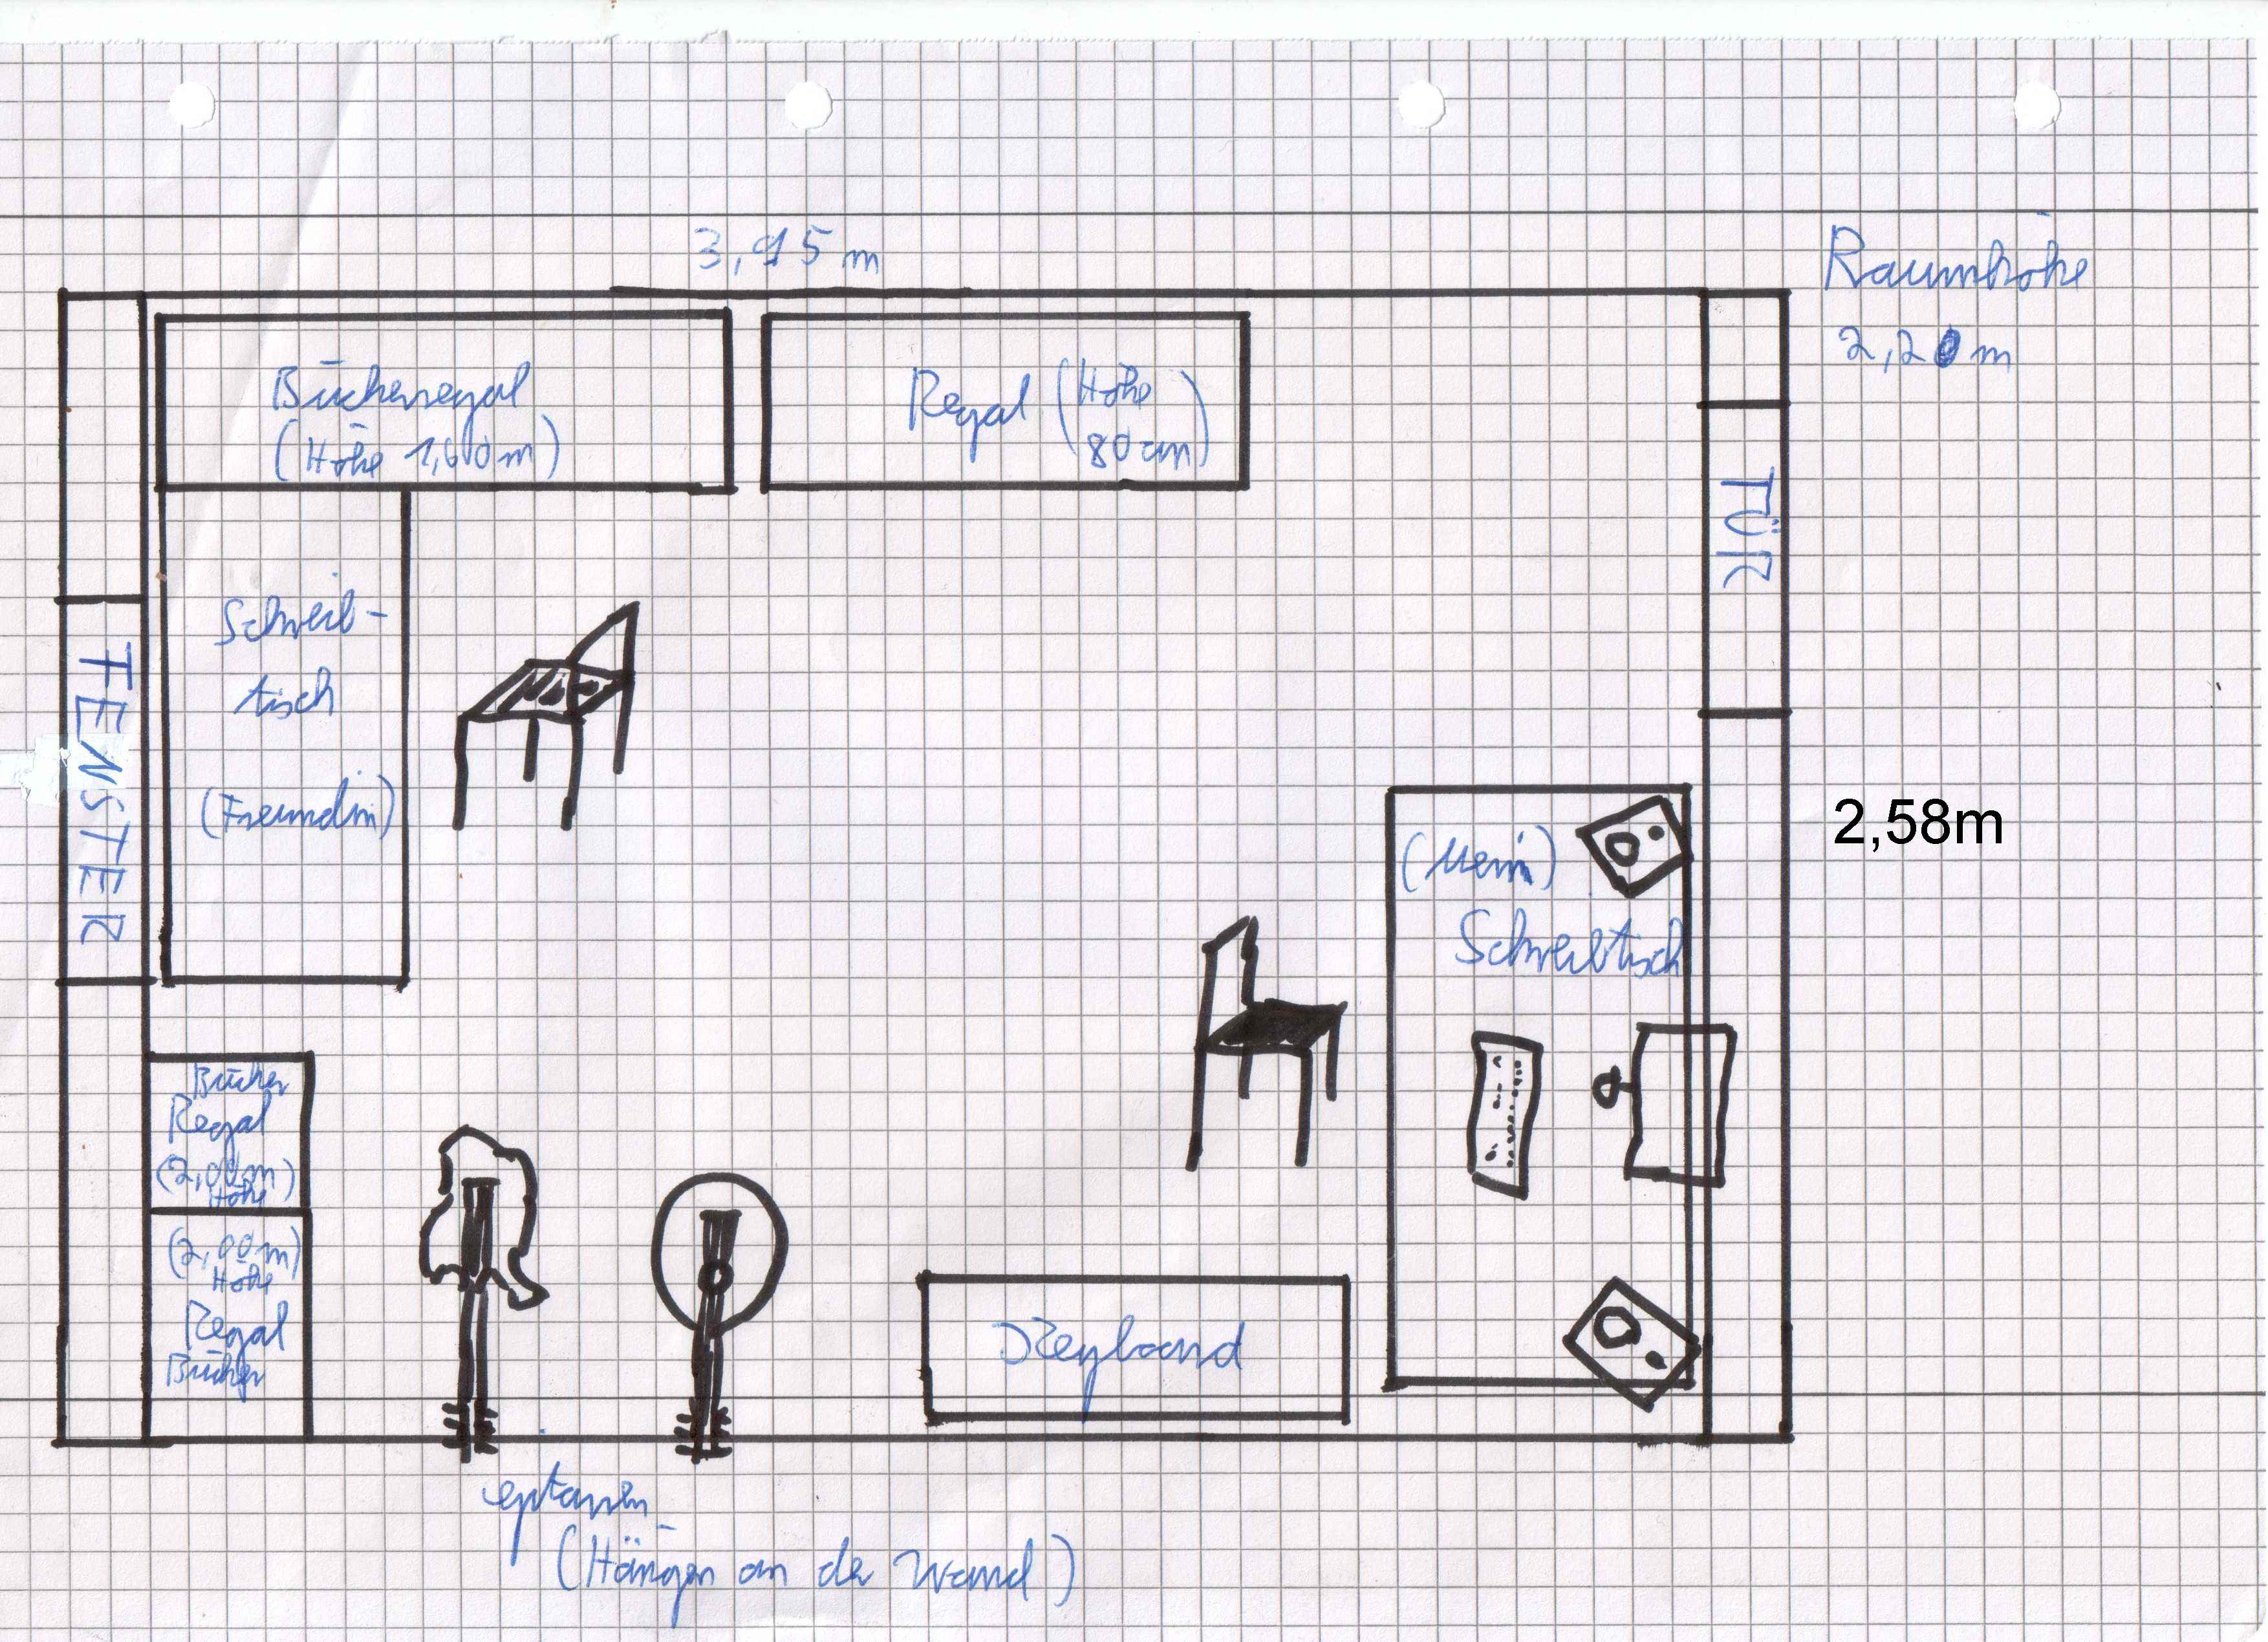 3,95 m
Raumhöhe
2,20 m
Bücherregal
(Höhe 1,60m)
Regal (Höhe
80cm)
TÜR
Schreib-
tisch
(Freundin)
FENSTER
2,58m
(Mein)
Schreibtisch
Bücher
Regal
(2,00m)
Höhe
(2,00m)
Höhe
Regal
Bücher
Keyboard
(Hängen an der Wand)